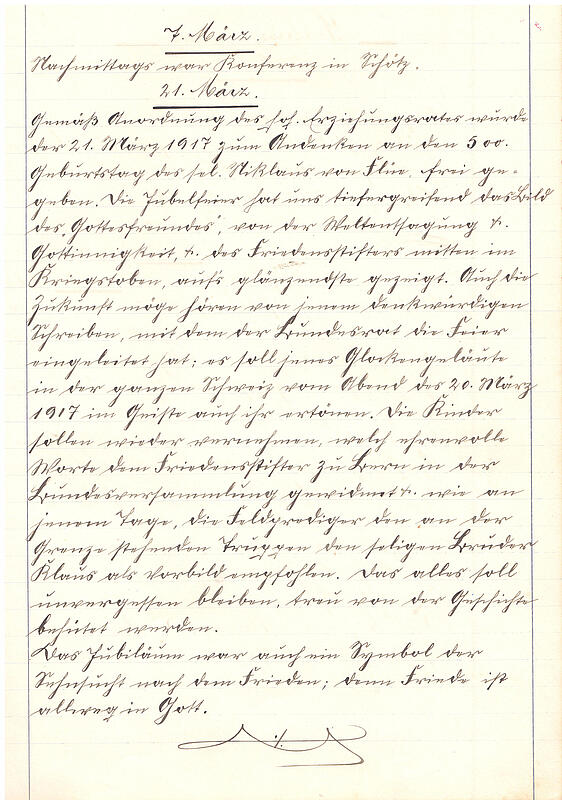 7. März.
Nachmittags war Konferenz in Schötz.
21. März.
Gemäß Anordnung des hoh. Erziehungsrates wurde
der 21. März 1917 zum Andenken an den 500.
Geburtstag des sel. Niklaus von Flüe, frei ge-
geben. Die Jubelfeier hat uns tiefergreifend das Bild
des „Gottesfreundes", von der Weltentsagung &.
Gottinnigkeit, &. des Friedensstifters mitten im
Kriegstoben, aufs glänzendste gezeigt. Auch die
Zukunft möge hören von jenem denkwürdigen
Schreiben, mit dem der Bundesrat die Feier
eingeleitet hat; es soll jenes Glockengeläute
in der ganzen Schweiz vom Abend des 20. März
1917 im Geiste auch ihr ertönen. Die Kinder
sollen wieder vernehmen, welch ehrenvolle
Worte dem Friedensstifter zu Bern in der
Bundesversammlung gewidmet &. wie an
jenem Tage, die Feldprediger den an der
Grenze stehenden Truppen den seligen Bruder
Klaus als Vorbild empfohlen. Das alles soll
unvergessen bleiben, treu von der Geschichte
behütet werden.
Das Jubiläum war auch ein Symbol der
Sehnsucht nach dem Frieden; denn Friede ist
allweg in Gott.